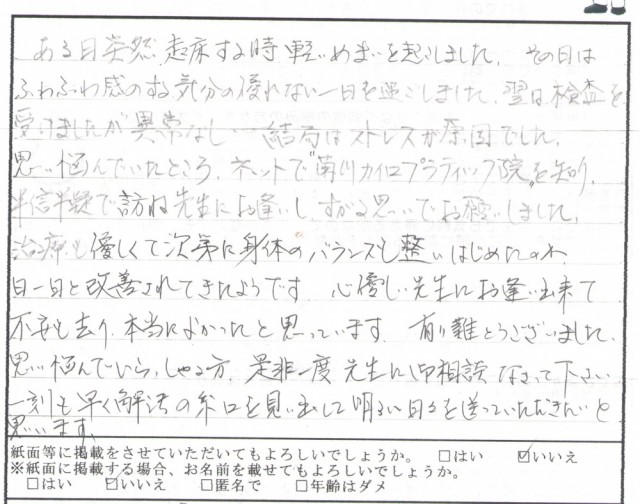 ある日突然、起床する時軽いめまいを起こしました。その日は
ふわふわ感のする気分の優れない一日を過ごしました。翌日、検査を
受けましたが異常なし… 結局はストレスが原因でした。
思い悩んでいたところ、ネットで"南川カイロプラティック院"を知り、
半信半疑で訪ね先生にお逢いし、すがる思いでお願いしました。
治療も優しくて次第に身体のバランスも整いはじめたのね
日一日と改善されてきたようです 心優しい先生にお逢い出来て
不安も去り、本当によかったと思っています。有り難とうございました。
思い悩んでいらっしゃる方、是非一度先生に御相談なさって下さい
一刻も早く解決の糸口を見い出して明るい日々を送っていただきたいと
思います。
紙面等に掲載をさせていただいてもよろしいでしょうか。 □はい ☑いいえ
※紙面に掲載する場合、お名前を載せてもよろしいでしょうか。
□はい ☑いいえ □匿名で □年齢はダメ